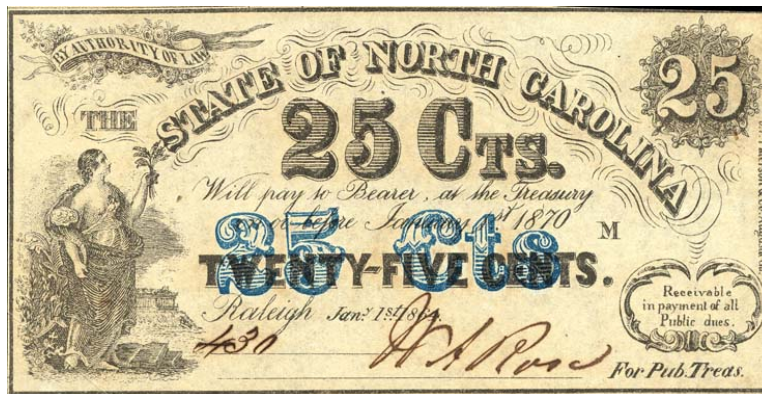 BY AUTHORITY OF LAW
THE
STATE OF NORTH CAROLINA
25
25 CTS.
Will pay to Bearer, at the Treasury
on or before January 1st 1870
M
25 Cts
TWENTY-FIVE CENTS.
Raleigh Jany. 1st 1864.
Receivable
in payment of all
Public dues.
430
For Pub. Treas.